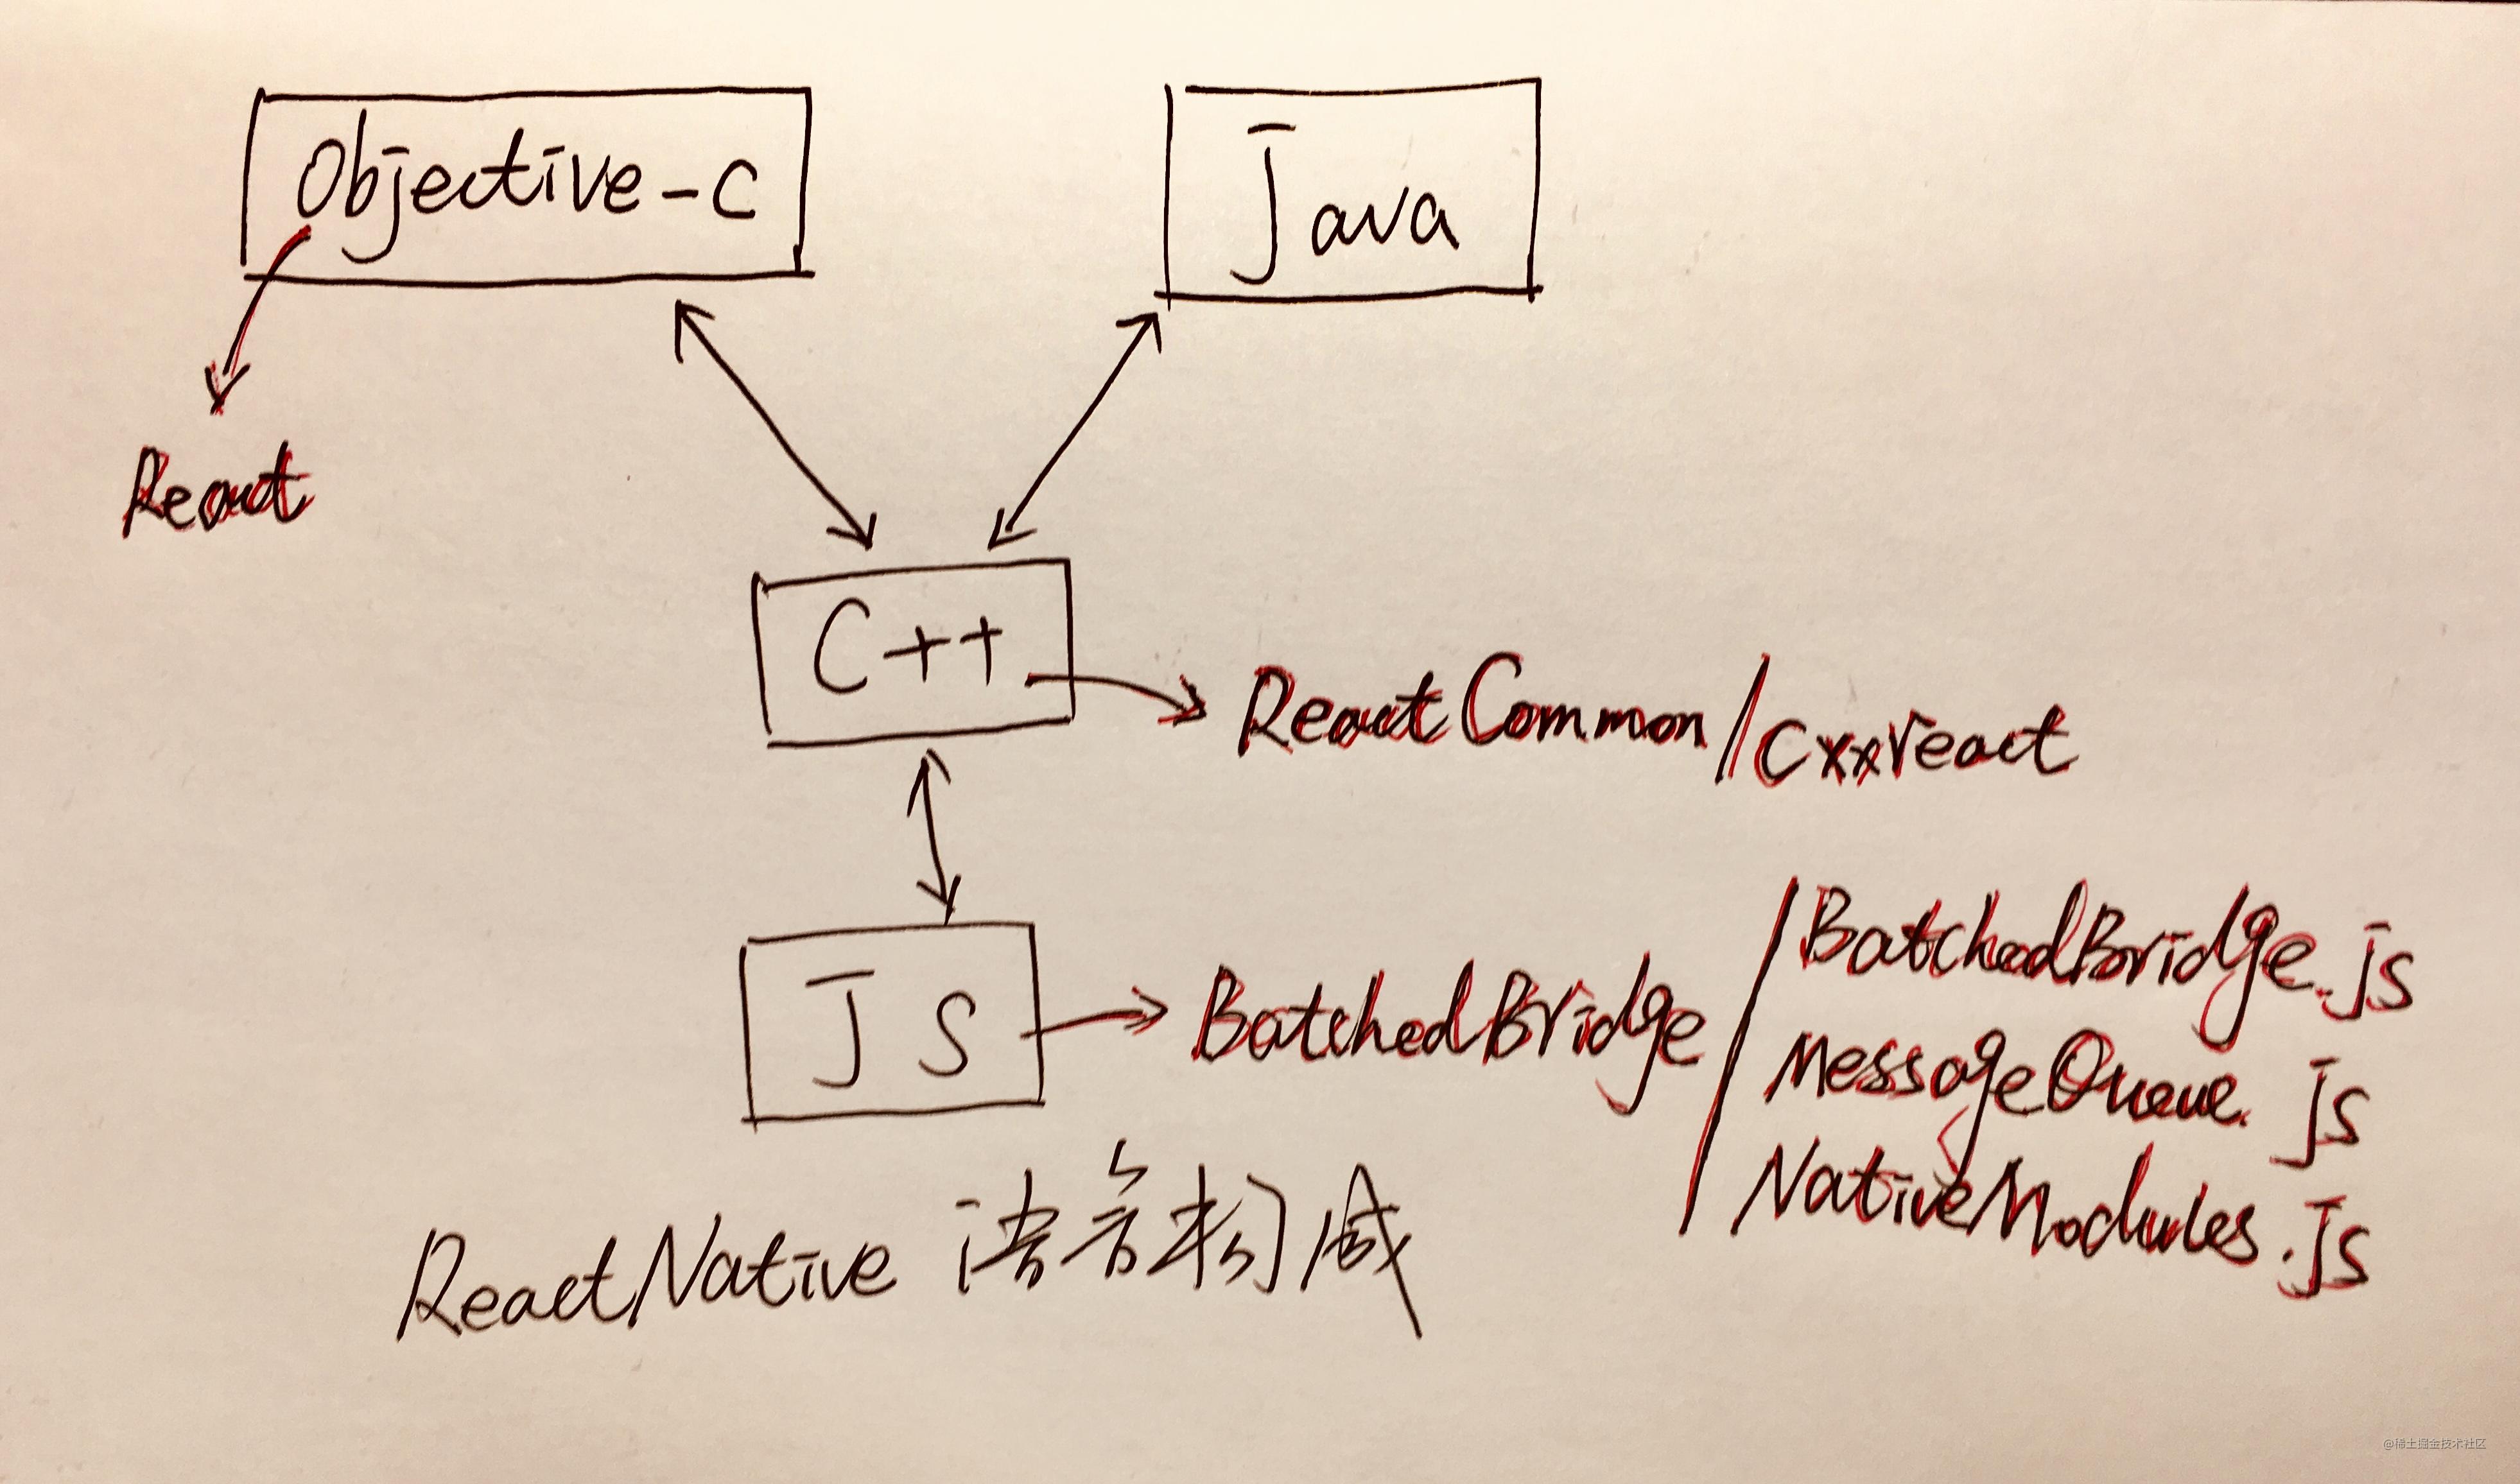 Objective-C
Java
React
C++
ReactCommon/cxxreact
JS
BatchedBridge/BatchedBridge.js
MessageQueue.js
NativeModules.js
ReactNative 语言构成
@稀土掘金技术社区